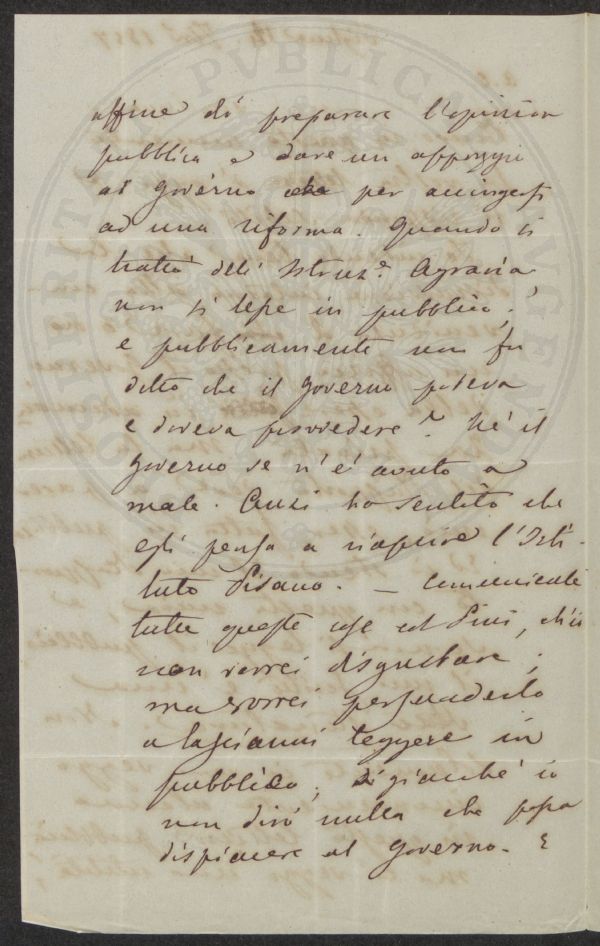 affine di preparare l'opinion
pubblica e dare un appoggio
al governo per accingersi
ad una riforma. Quando si
trattò dell' Istruz.e Agraria,
non si lesse in pubblico;
e pubblicamente non fu
detto che il governo poteva
e doveva provvedere? Nè il
governo se n'è avuto a
male. Anzi ho sentito che
egli pensa a riaprire l'Isti-
tuto Pisano. — Comunicate
tutte queste cose al Pini, ch'io
non vorrei disgustare;
ma vorrei persuaderlo
a lasciarmi leggere in
pubblico; giacchè io
non dirò nulla che possa
dispiacere al governo. E